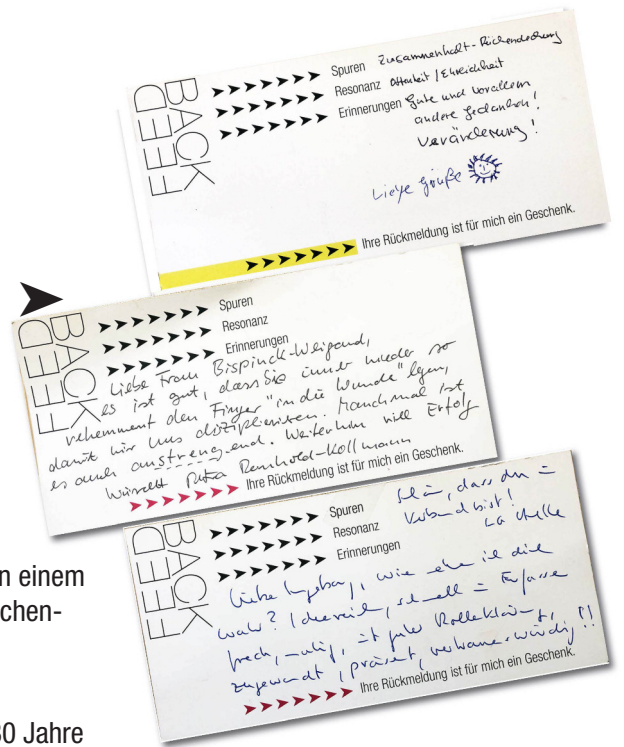 FEED
BACK
Spuren Zusammenhalt - Rückendeckung
Resonanz Offenheit / Ehrlichkeit
Erinnerungen Gute und vorallem
andere Gedanken!
Veränderung!
Liebe Grüße
Ihre Rückmeldung ist für mich ein Geschenk.
FEED
BACK
Spuren
Resonanz
Erinnerungen
Liebe Frau Bispinck-Weigand,
es ist gut, dass Sie immer wieder so
vehement den Finger "in die Wunde" legen,
damit wir uns disziplinieren. Manchmal ist
es auch anstrengend. Weiterhin viel Erfolg
wünscht
Ihre Rückmeldung ist für mich ein Geschenk.
FEED
BACK
Spuren
Resonanz
Erinnerungen
Schön, dass du im
Verband bist!
Liebe Ingeborg, wie sehe ich dich
wahr? Ideenreich, schnell im Erfassen
frech, mutig, mit guter Rolleklärung,
zugewandt, präsent, vertrauenswürdig!!
Ihre Rückmeldung ist für mich ein Geschenk.
n einem
chen-
30 Jahre